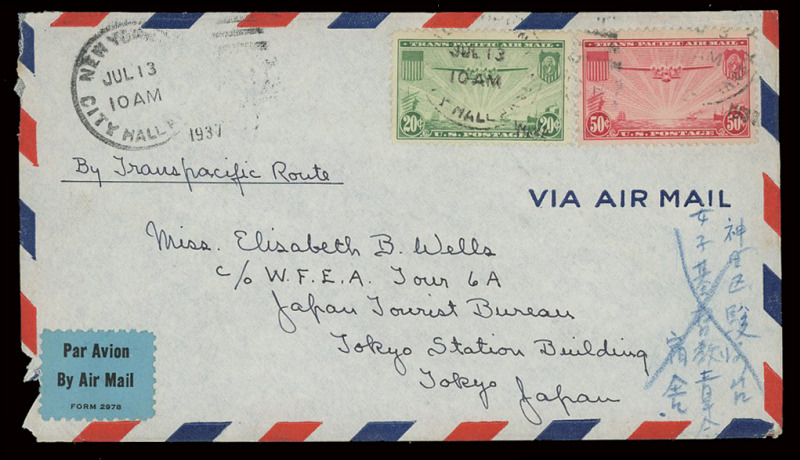 NEW YORK
JUL 13
10 AM
1937
CITY HALL
TRANS-PACIFIC AIR MAIL
JUL 13
10 AM
HALL
20¢ 20¢
U.S. POSTAGE
TRANS-PACIFIC AIR MAIL
AM
50¢ 50¢
U.S. POSTAGE
By Transpacific Route
VIA AIR MAIL
Miss. Elisabeth B. Wells
c/o W.F.E.A. Tour 6A
Japan Tourist Bureau
Tokyo Station Building
Tokyo Japan
神田区駿河台
女子基督教青年会
宿舎
Par Avion
By Air Mail
FORM 2978